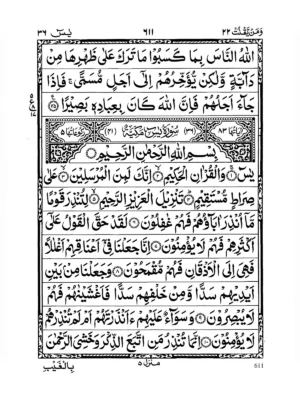 وَمَنْ يَّقْنُتْ ٢٢ ٦١١ يٰسٓ ٣٦
اللّٰهُ النَّاسَ بِمَا كَسَبُوْا مَا تَرَكَ عَلٰى ظَهْرِهَا مِنْ
دَآبَّةٍ وَّلٰكِنْ يُّؤَخِّرُهُمْ اِلٰٓى اَجَلٍ مُّسَمًّى ۚ فَاِذَا
جَآءَ اَجَلُهُمْ فَاِنَّ اللّٰهَ كَانَ بِعِبَادِهٖ بَصِيْرًا ۝
اٰيَاتُهَا ٨٣ (٣٦) سُوْرَةُ يٰسٓ مَكِّيَّةٌ (٤١) رُكُوْعَاتُهَا ٥
بِسْمِ اللّٰهِ الرَّحْمٰنِ الرَّحِيْمِ ۝
يٰسٓ ۝ وَالْقُرْاٰنِ الْحَكِيْمِ ۝ اِنَّكَ لَمِنَ الْمُرْسَلِيْنَ ۝ عَلٰى
صِرَاطٍ مُّسْتَقِيْمٍ ۝ تَنْزِيْلَ الْعَزِيْزِ الرَّحِيْمِ ۝ لِتُنْذِرَ قَوْمًا
مَّآ اُنْذِرَ اٰبَآؤُهُمْ فَهُمْ غٰفِلُوْنَ ۝ لَقَدْ حَقَّ الْقَوْلُ عَلٰٓى
اَكْثَرِهِمْ فَهُمْ لَا يُؤْمِنُوْنَ ۝ اِنَّا جَعَلْنَا فِيْٓ اَعْنَاقِهِمْ اَغْلٰلًا
فَهِيَ اِلَى الْاَذْقَانِ فَهُمْ مُّقْمَحُوْنَ ۝ وَجَعَلْنَا مِنْۢ بَيْنِ
اَيْدِيْهِمْ سَدًّا وَّمِنْ خَلْفِهِمْ سَدًّا فَاَغْشَيْنٰهُمْ فَهُمْ
لَا يُبْصِرُوْنَ ۝ وَسَوَآءٌ عَلَيْهِمْ ءَاَنْذَرْتَهُمْ اَمْ لَمْ تُنْذِرْهُمْ
لَا يُؤْمِنُوْنَ ۝ اِنَّمَا تُنْذِرُ مَنِ اتَّبَعَ الذِّكْرَ وَخَشِيَ الرَّحْمٰنَ
بِالْغَيْبِ منزل ٥ 611